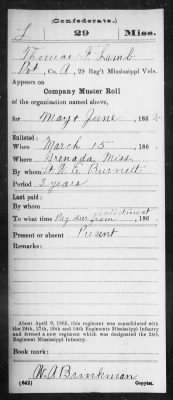 (Confederate.)
L 29 Miss.
Thomas F Lamb
Pvt, Co. A, 29 Reg't Mississippi Vols.
Appears on
Company Muster Roll
of the organization named above,
for May & June, 186 2.
Enlisted:
When March 15, 186 .
Where Grenada, Miss.
By whom A. E. Burnett
Period 3 years
Last paid:
By whom
To what time Pay due from enlistment, 186 .
Present or absent Present
Remarks:
About April 9, 1865, this regiment was consolidated with
the 24th, 27th, 30th and 34th Regiments Mississippi Infantry
and formed a new regiment which was designated the 24th
Regiment Mississippi Infantry.
Book mark:
W. A. Brinkman
(642) Copyist.